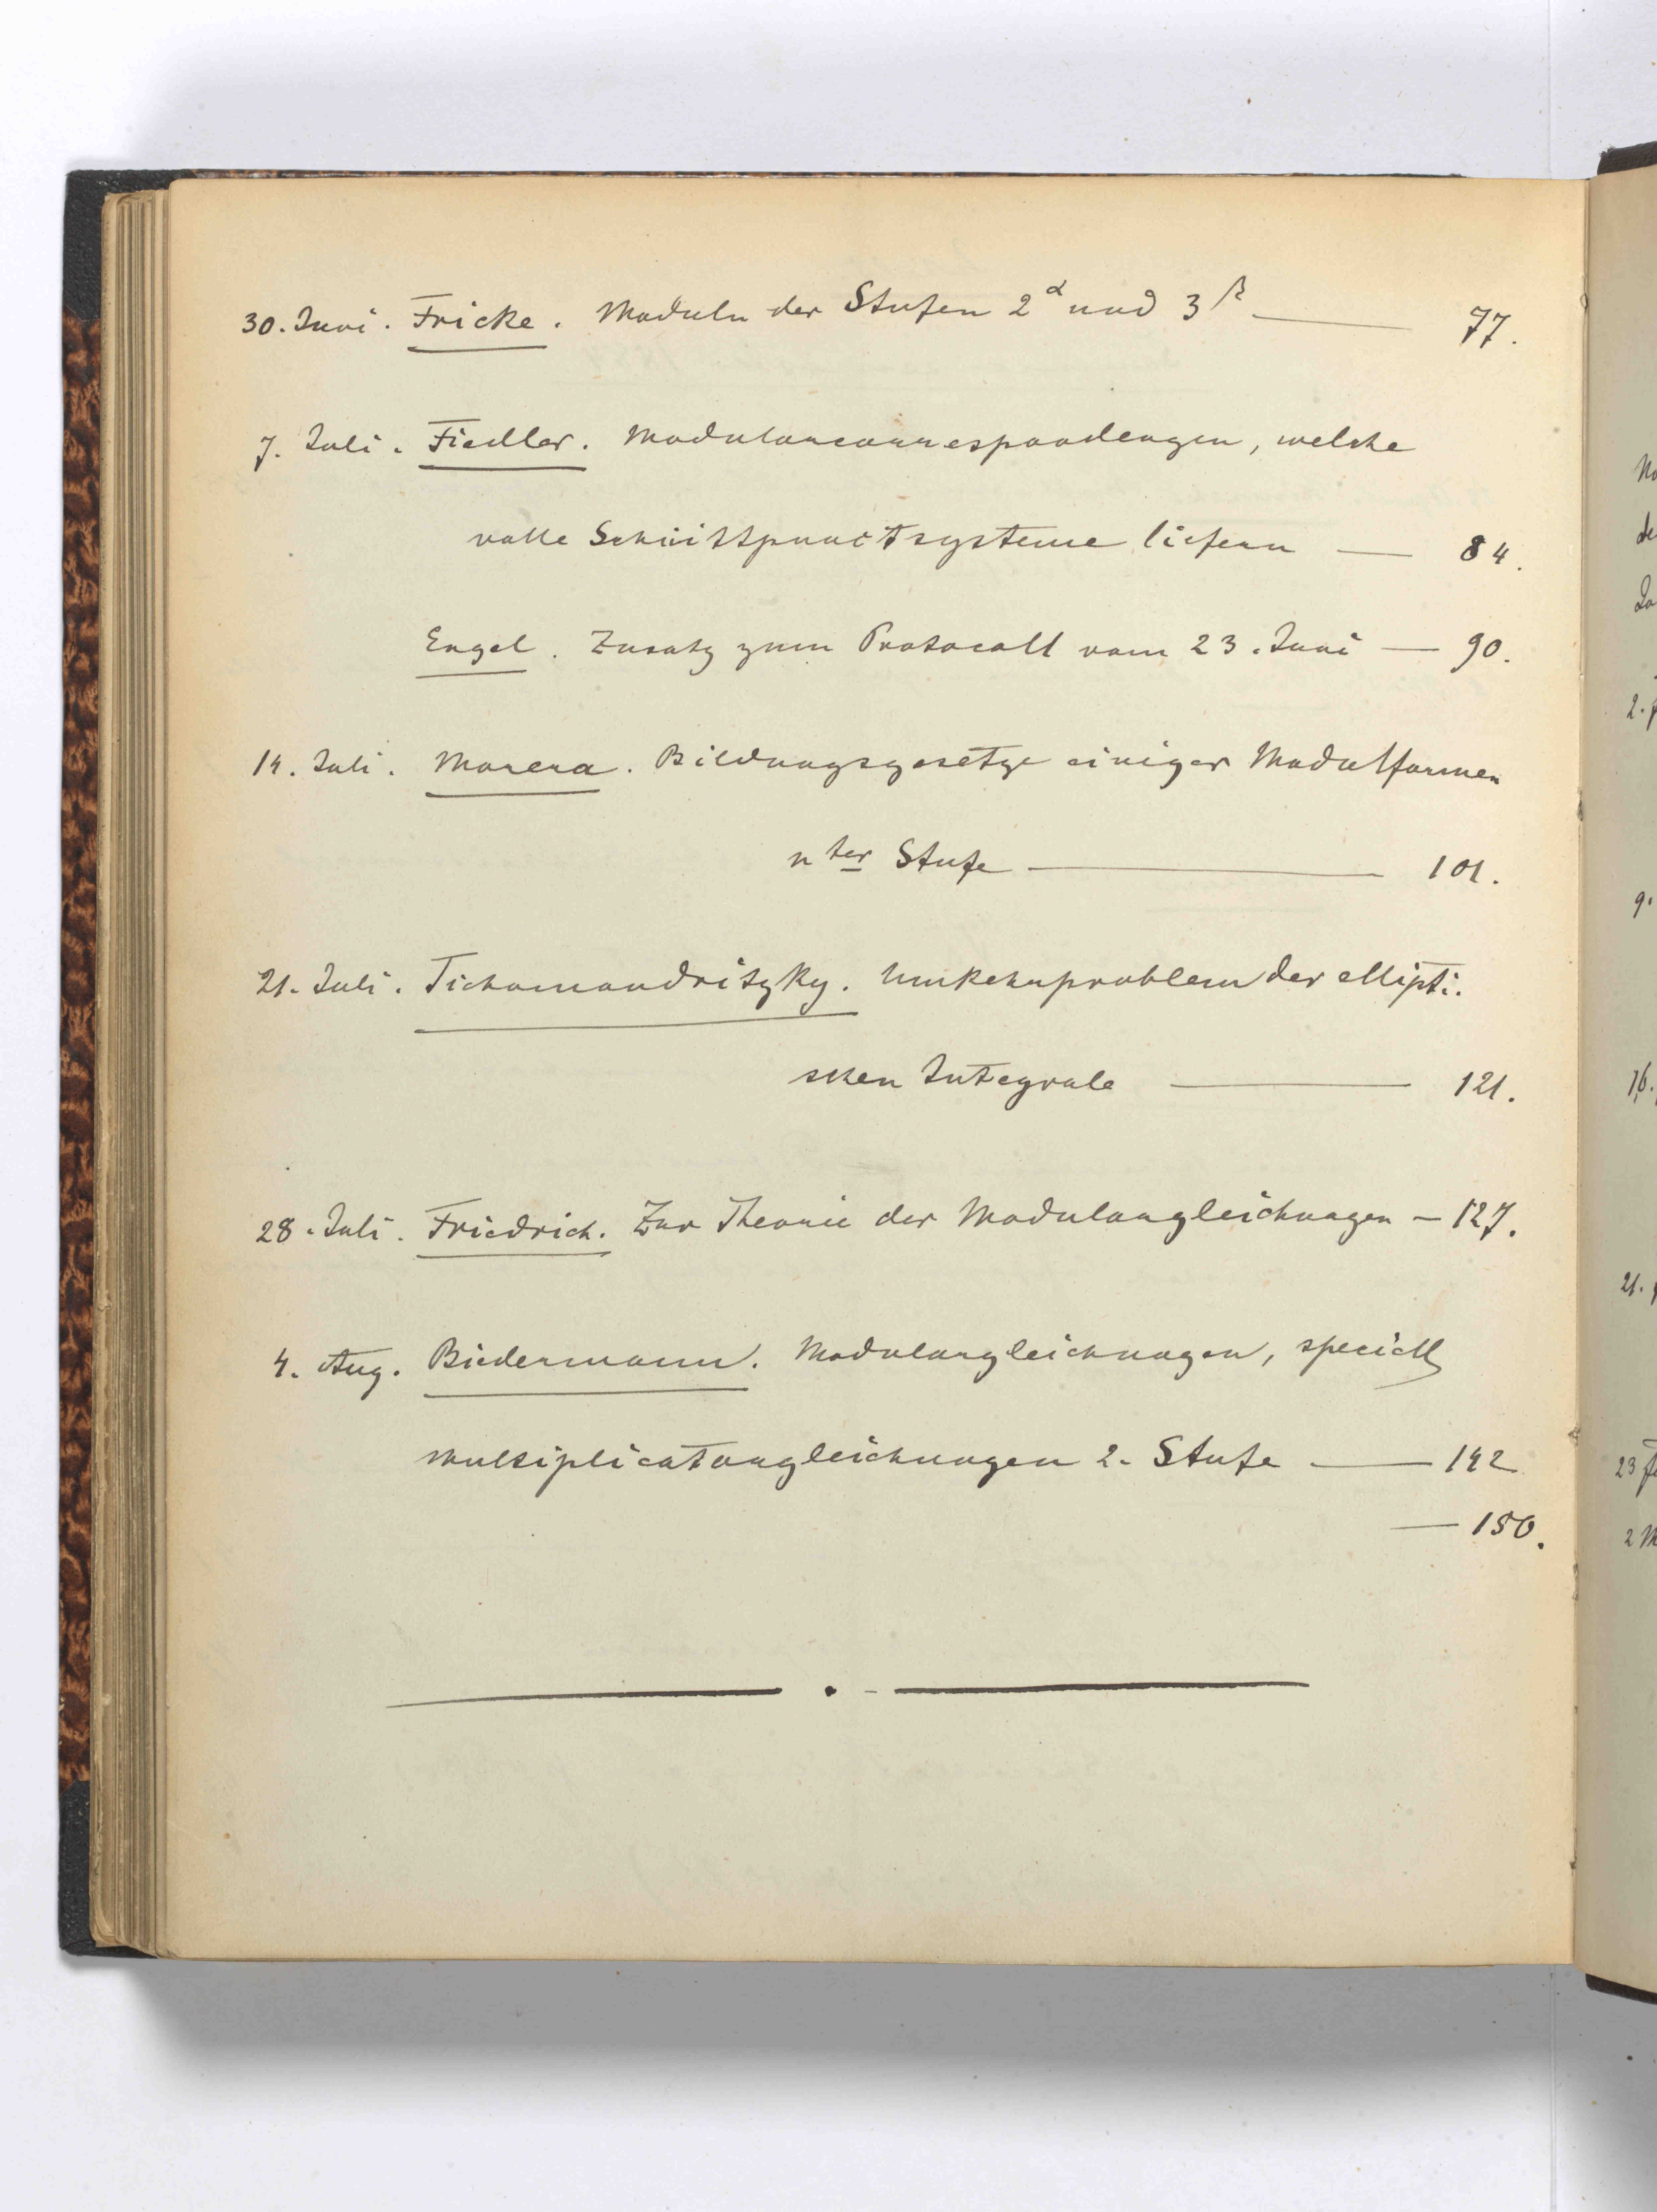 30. Juni. Fricke. Moduln der Stufen 2^α und 3^β — 77.
7. Juli. Fiedler. Modularcorrespondenzen, welche
volle Schnittpunctsysteme liefern — 84.
Engel. Zusatz zum Protocoll vom 23. Juni — 90.
14. Juli. Morera. Bildungsgesetze einiger Modulformen
nter Stufe — 101.
21. Juli. Tichomandritzky. Umkehrproblem der ellipti-
schen Integrale — 121.
28. Juli. Friedrich. Zur Theorie der Modulargleichungen — 127.
4. Aug. Biedermann. Modulargleichungen, speciell
Multiplicatorgleichungen 2. Stufe — 142
— 150.
2.
9.
16.
21.
23
2 M